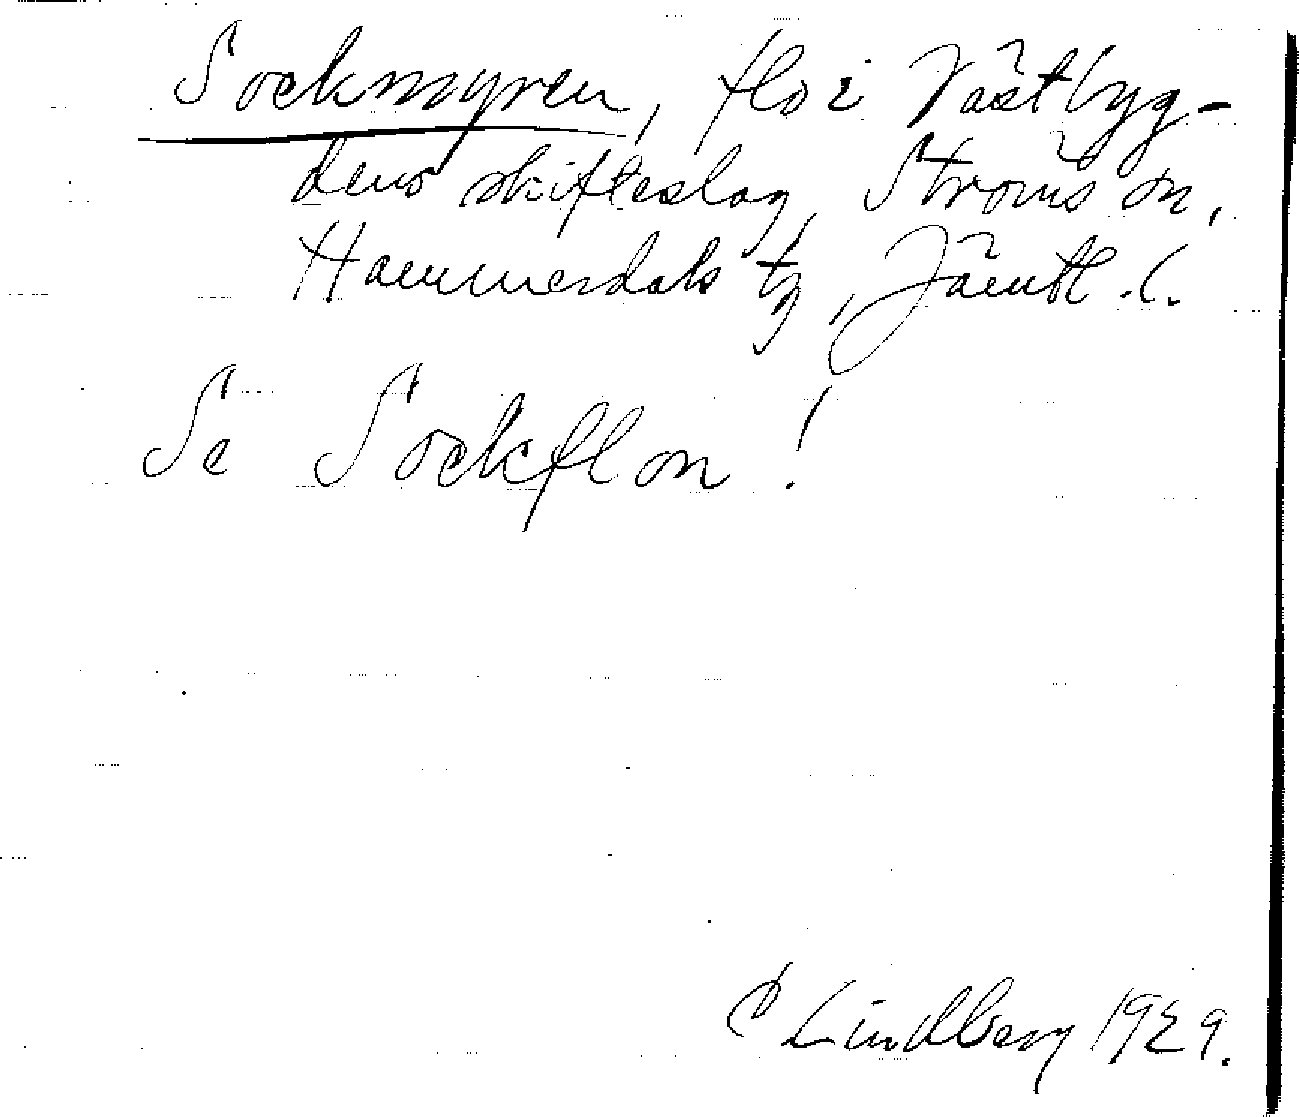 Sockmyren, flo i Västbyg-
dens skifteslag, Ströms sn,
Hammerdals tg, Jämtl. l.
Se Sockflon!
C Lindberg 1929.